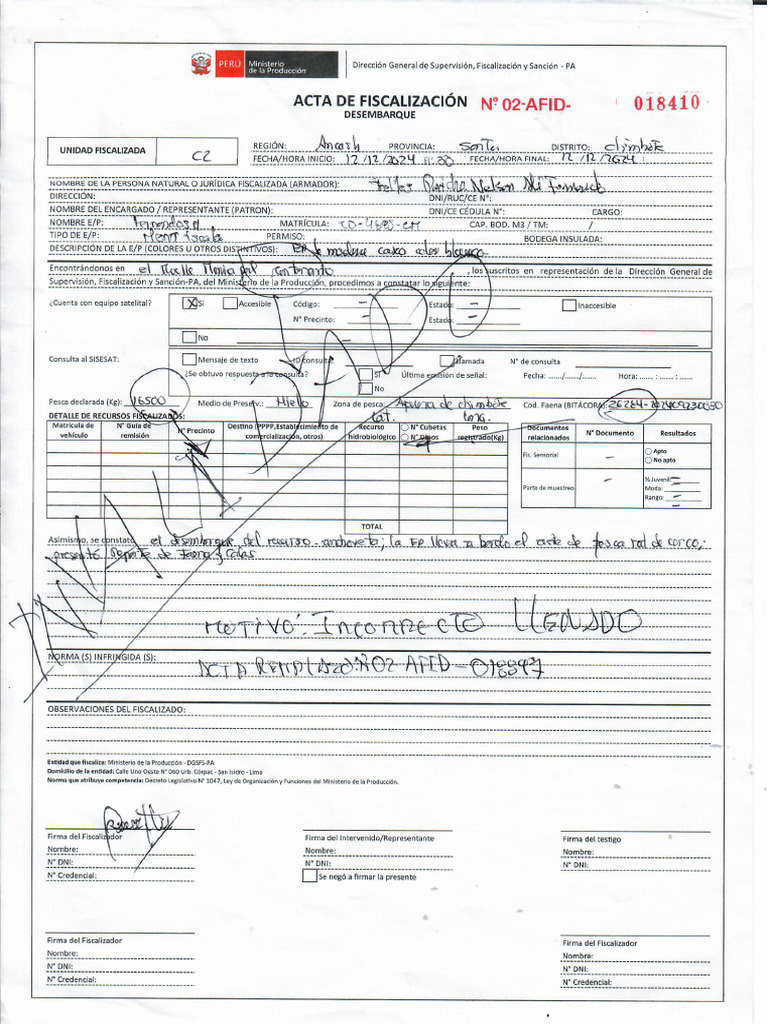 PERÚ Ministerio de la Producción Dirección General de Supervisión, Fiscalización y Sanción - PA
ACTA DE FISCALIZACIÓN Nº 02-AFID- 018410
DESEMBARQUE
UNIDAD FISCALIZADA C2
REGIÓN: Ancash PROVINCIA: Santa DISTRITO: Chimbote
FECHA/HORA INICIO: 12/12/2024 FECHA/HORA FINAL: 12/12/2024
NOMBRE DE LA PERSONA NATURAL O JURÍDICA FISCALIZADA (ARMADOR): Nelson
DIRECCIÓN: DNI/RUC/CE N°:
NOMBRE DEL ENCARGADO / REPRESENTANTE (PATRON): DNI/CE CÉDULA N°: CARGO:
NOMBRE E/P: MATRÍCULA: CAP. BOD. M3 / TM: /
TIPO DE E/P: PERMISO: BODEGA INSULADA:
DESCRIPCIÓN DE LA E/P (COLORES U OTROS DISTINTIVOS): EP de madera casco color blanco
Encontrándonos en el Muelle , los suscritos en representación de la Dirección General de
Supervisión, Fiscalización y Sanción-PA, del Ministerio de la Producción, procedimos a constatar lo siguiente:
¿Cuenta con equipo satelital? X Si Accesible Código: - Estado: - Inaccesible
N° Precinto: - Estado: -
No
Consulta al SISESAT: Mensaje de texto ID consulta: Llamada N° de consulta
¿Se obtuvo respuesta a la consulta? SI Última emisión de señal: Fecha: ....../....../...... Hora: ...... : ...... : ......
No
Pesca declarada (Kg): 16500 Medio de Preserv.: Hielo Zona de pesca: Afuera de chimbote Cod. Faena (BITÁCORA):
DETALLE DE RECURSOS FISCALIZADOS: Lat. Long.
Matricula de vehículo N° Guía de remisión N° Precinto Destino (PPPP, Establecimiento de comercialización, otros) Recurso hidrobiológico N° Cubetas N° Dinos Peso registrado(Kg)
Documentos relacionados N° Documento Resultados
Fis. Sensorial - Apto
No apto
Parte de muestreo - % Juvenil: -
Moda: -
Rango: -
TOTAL
Asimismo, se constató el desembarque del recurso anchoveta; la EP lleva a bordo el arte de pesca red de cerco;
presentó Reporte de Faena y Calas
INVALIDADO
MOTIVO: INCORRECTO LLENADO
NORMA (S) INFRINGIDA (S):
ACTA REMPLAZO: Nº 02 AFID-018897
OBSERVACIONES DEL FISCALIZADO:
Entidad que fiscaliza: Ministerio de la Producción - DGSFS-PA
Domicilio de la entidad: Calle Uno Oeste N° 060 Urb. Córpac - San Isidro - Lima
Norma que atribuye competencia: Decreto Legislativo N° 1047, Ley de Organización y Funciones del Ministerio de la Producción.
Firma del Fiscalizador Firma del Intervenido/Representante Firma del testigo
Nombre: Nombre: Nombre:
N° DNI: N° DNI: N° DNI:
N° Credencial: Se negó a firmar la presente
Firma del Fiscalizador Firma del Fiscalizador
Nombre: Nombre:
N° DNI: N° DNI:
N° Credencial: N° Credencial: